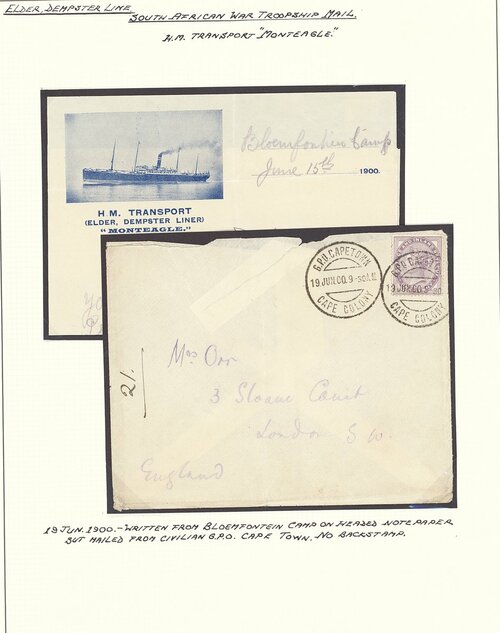 ELDER, DEMPSTER LINE.
SOUTH AFRICAN WAR TROOPSHIP MAIL.
H.M. TRANSPORT "MONTEAGLE."
Bloemfontein Camp
June 15th 1900.
H. M. TRANSPORT
(ELDER, DEMPSTER LINER)
"MONTEAGLE."
G.P.O. CAPETOWN
19 JUN.00.9
CAPE COLONY
G.P.O. CAPET
19 JUN.00.9
CAPE COLONY
21.
Mrs Orr
3 Sloane Court
London S W.
England
19 JUN. 1900. - WRITTEN FROM BLOEMFONTEIN CAMP ON HEADED NOTEPAPER
BUT MAILED FROM CIVILIAN G.P.O. CAPE TOWN. NO BACKSTAMP.